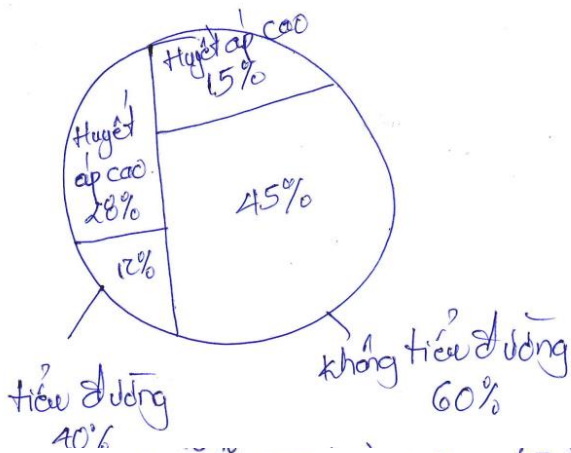 Huyết áp cao
15%
Huyết
áp cao
28%
45%
12%
tiểu đường
40%
không tiểu đường
60%